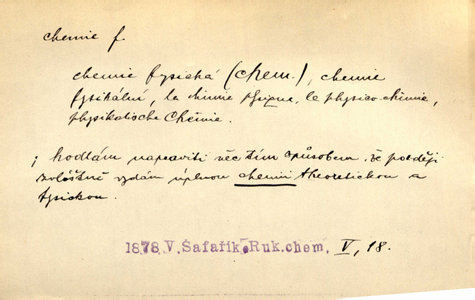 chemie f.
chemie fysická (chem.), chemie
fysikální, la chimie physique, la physico-chimie,
physikalische Chemie.
; hodlám napraviti věc tím způsobem, že později
zvláštně vydám úplnou chemii theoretickou a
fysickou.
1878 V. Šafařík, Ruk. chem. V, 18.